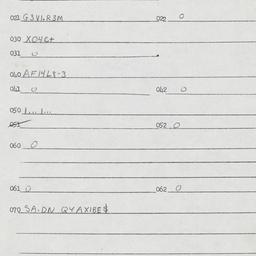 021 G3VLR3M 022 0
030 X04C+
031 0
040 AF14L8-3
041 0 042 0
050 1... 1...
051 052 0
060 0
061 0 062 0
070 SA.DN QYAXIBE$